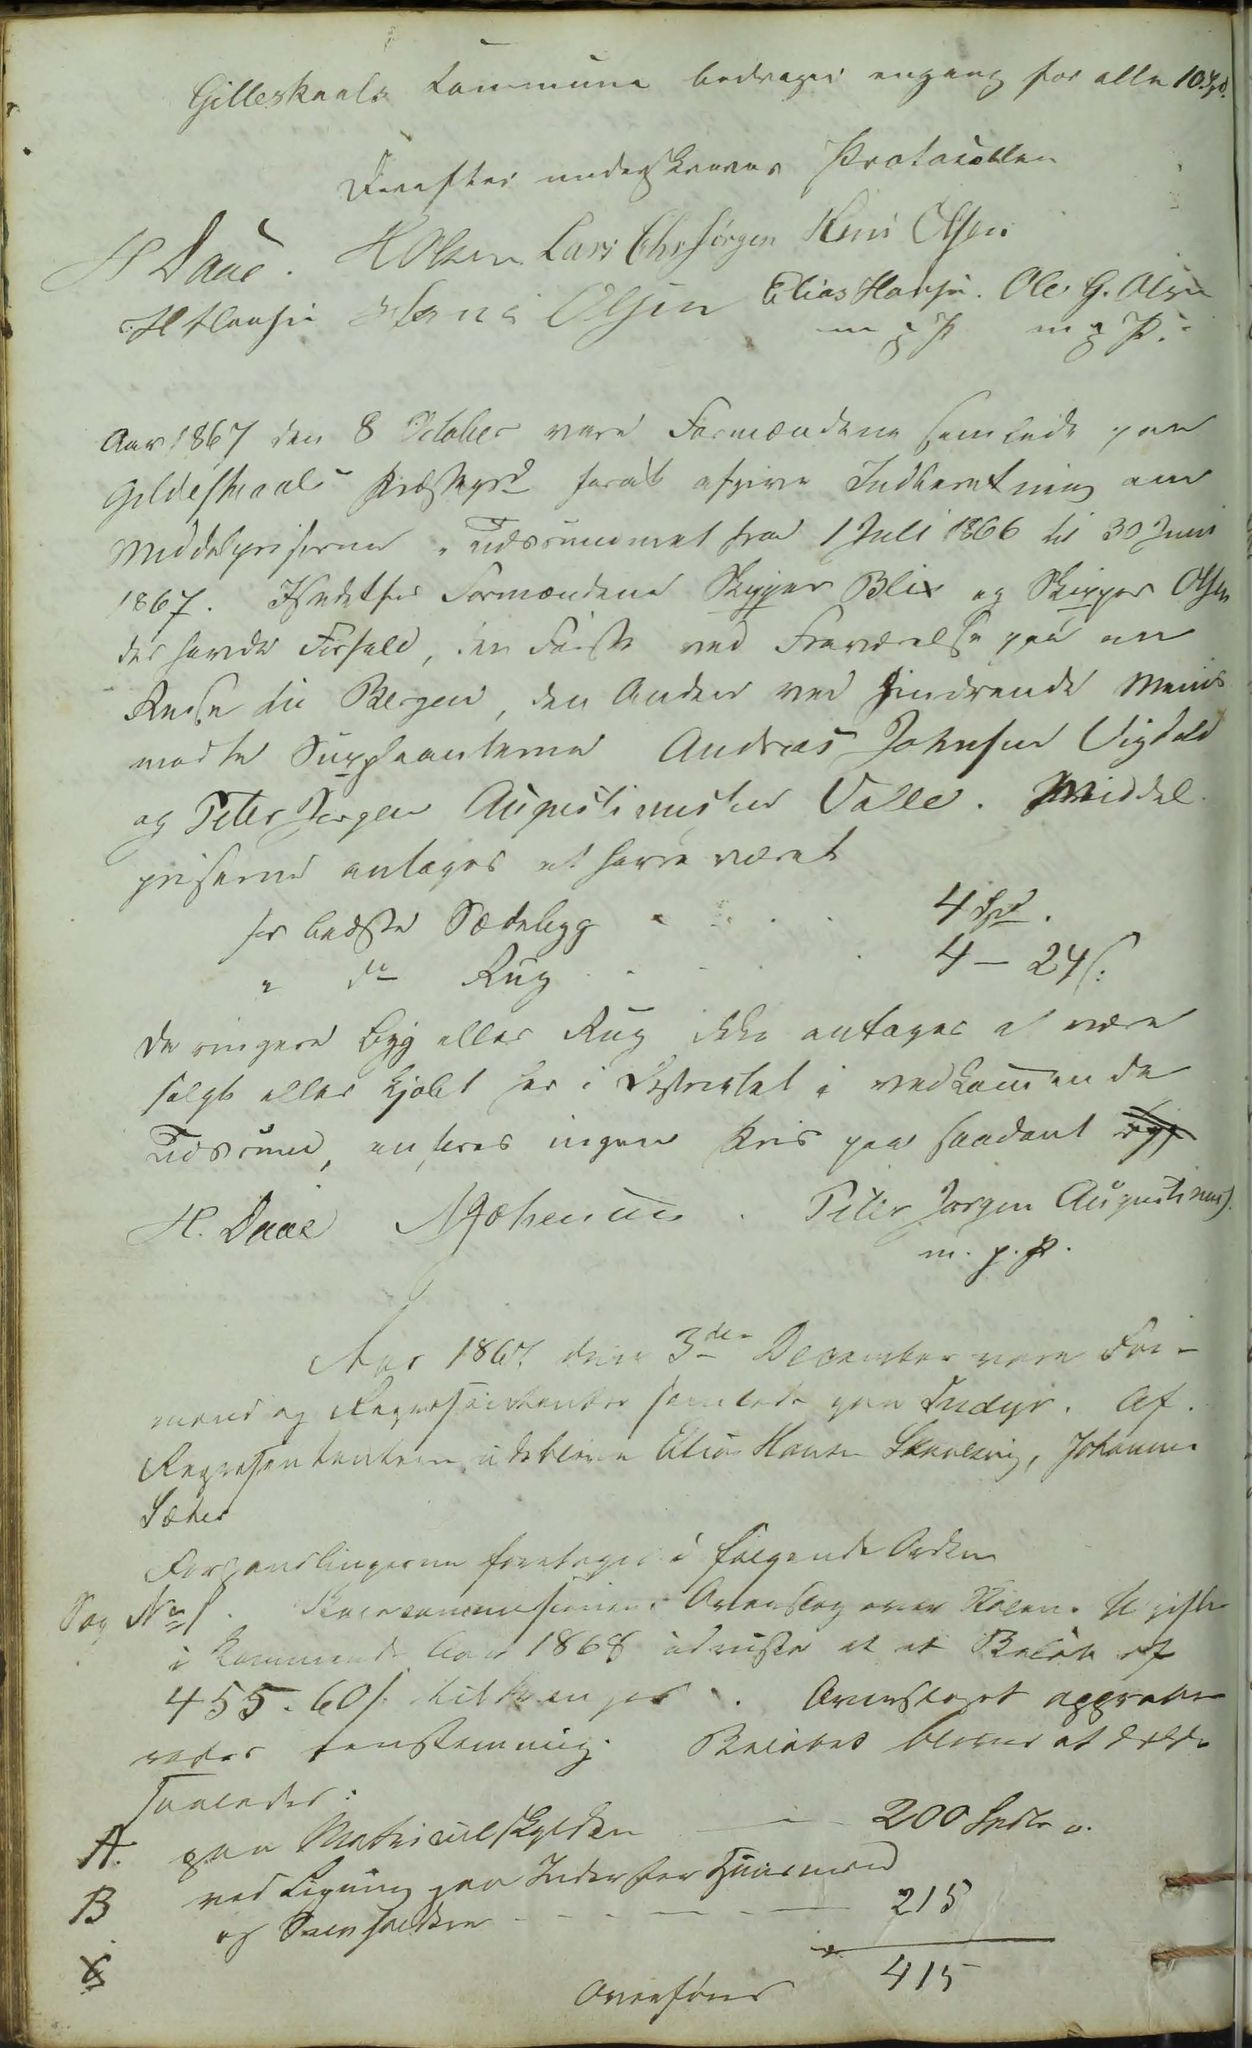 Gilleskaals Kommune bedrages engang for alle 10 Spd.
Derefter underskreves Protocollen
H Daae. H Olsen Lars Chr Jørgen Hans Olsen
H Hansen Hans Olsen Elias Hansen. Ole G. Olsen
m p P m p P.
Aar 1867 den 8 October vare Formændene samlede paa
Gildeskaals Præstegrd forat afgive Indberetning om
Middelpriserne i Tidsrummet fra 1 Juli 1866 til 30 Juni
1867. Istedetfor Formændene Skipper Blix og Skipper Olsen
der havde Forfald, den Første ved Fraværelse paa en
Reise til Bergen, den Anden ved hindrende
mødte Suppleanterne Andreas Johnsen Vigdal
og Peter Jørgen Augustinussen Valle. Middel
priserne antages at have været
for bedste Sædebyg 4 Spd.
" do Rug 4 - 24 s:
Da ringere Byg eller Rug ikke antages at være
solgt eller kjøbt her i Districtet i vedkommende
Tidsrum, anføres ingen Pris paa saadant
H. Daae A Johnsen. Peter Jørgen Augustinus.
m. p. P.
Aar 1867 den 3die December vare For-
mænd og Repræsentanter samlede paa Inndyr. Af
Repræsentanterne udebleve Elias Hansen, Johannes
Sæter
Forhandlingerne foretoges i følgende Orden
Sag No 1. Skolecommissionens Overslag over Skolens Udgifter
i kommende Aar 1868 udviste at et Beløb af
455 - 60 s. tiltrænges. Overslaget appro
veredes eenstemmig. Beløbet bliver at
saaledes:
A. paa Matriculskylden 200 Spdlr.
B ved Ligning paa Inderster Huusmænd
og 215
C
Overføres 415